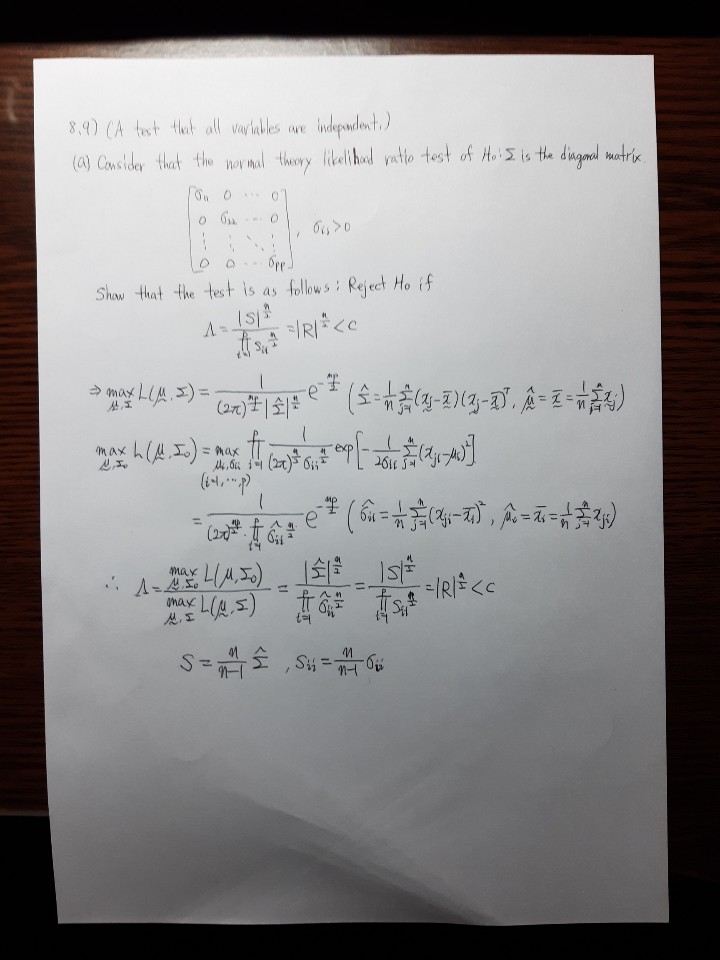 8.9) (A test that all variables are independent.)
(a) Consider that the normal theory likelihood ratio test of H₀: Σ is the diagonal matrix.
[σ₁₁ 0 ⋯ 0
0 σ₂₂ ⋯ 0
⋮ ⋮ ⋱ ⋮
0 0 ⋯ σpp] , σᵢᵢ>0
Show that the test is as follows: Reject H₀ if
Λ = |S|^(n/2) / ∏_{i=1}^{p} sᵢᵢ^(n/2) = |R|^(n/2) < c
⇒ max_{μ,Σ} L(μ,Σ) = 1 / ((2π)^(np/2) |Σ̂|^(n/2)) e^(-np/2) (Σ̂ = 1/n Σ_{j=1}^{n} (xⱼ-x̄)(xⱼ-x̄)ᵀ, μ̂ = x̄ = 1/n Σ_{j=1}^{n} xⱼ)
max_{μ,Σ₀} L(μ,Σ₀) = max_{μᵢ,σᵢᵢ (i=1,⋯,p)} ∏_{i=1}^{p} 1 / ((2π)^(n/2) σᵢᵢ^(n/2)) exp[-1/(2σᵢᵢ) Σ_{j=1}^{n} (xⱼᵢ-μᵢ)²]
= 1 / ((2π)^(np/2) · ∏_{i=1}^{p} σ̂ᵢᵢ^(n/2)) e^(-np/2) (σ̂ᵢᵢ = 1/n Σ_{j=1}^{n} (xⱼᵢ-x̄ᵢ)², μ̂ᵢ = x̄ᵢ = 1/n Σ_{j=1}^{n} xⱼᵢ)
∴ Λ = max_{μ,Σ₀} L(μ,Σ₀) / max_{μ,Σ} L(μ,Σ) = |Σ̂|^(n/2) / ∏_{i=1}^{p} σ̂ᵢᵢ^(n/2) = |S|^(n/2) / ∏_{i=1}^{p} Sᵢᵢ^(n/2) = |R|^(n/2) < c
S = n/(n-1) Σ̂ , Sᵢᵢ = n/(n-1) σᵢᵢ